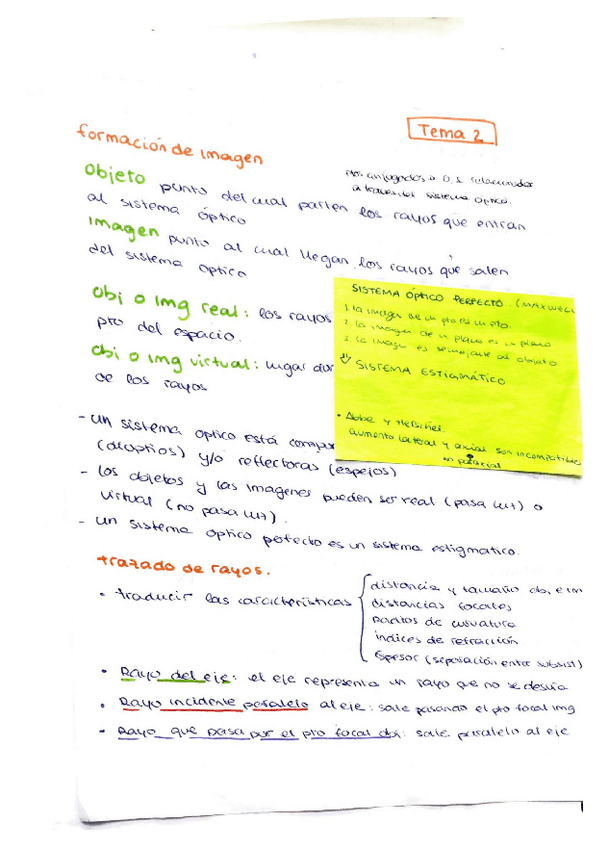 Tema 2
formación de imagen
ptos conjugados o O, I relacionados
a traves del sistema óptico.
Objeto punto del cual parten los rayos que entran
al sistema óptico
Imagen punto al cual llegan los rayos que salen
del sistema optico
obj o img real: los rayos
pto del espacio.
obj o img virtual: lugar don
de los rayos
SISTEMA ÓPTICO PERFECTO. (MAXWELL
1. la imagen de un pto es un pto.
2. la imagen de un plano es un plano
3. la imagen es semejante al objeto
SISTEMA ESTIGMÁTICO
• Abbe y Herschel.
aumento lateral y axial son incompatibles
en paraxial
- un sistema optico está compu
(dioptrios) y/o reflectoras (espejos)
- los objetos y las imagenes pueden ser real (pasa luz) o
virtual (no pasa luz).
- un sistema optico perfecto es un sistema estigmatico.
trazado de rayos.
• traducir las caracteristicas
distancia y tamaño obj e im
distancias focales
Radios de curvatura
indices de refracción
Espesor (separación entre subsist)
• Rayo del eje: el eje representa un rayo que no se desvía
• Rayo incidente paralelo al eje: sale pasando el pto focal img
- Rayo que pasa por el pto focal obj: sale paralelo al eje